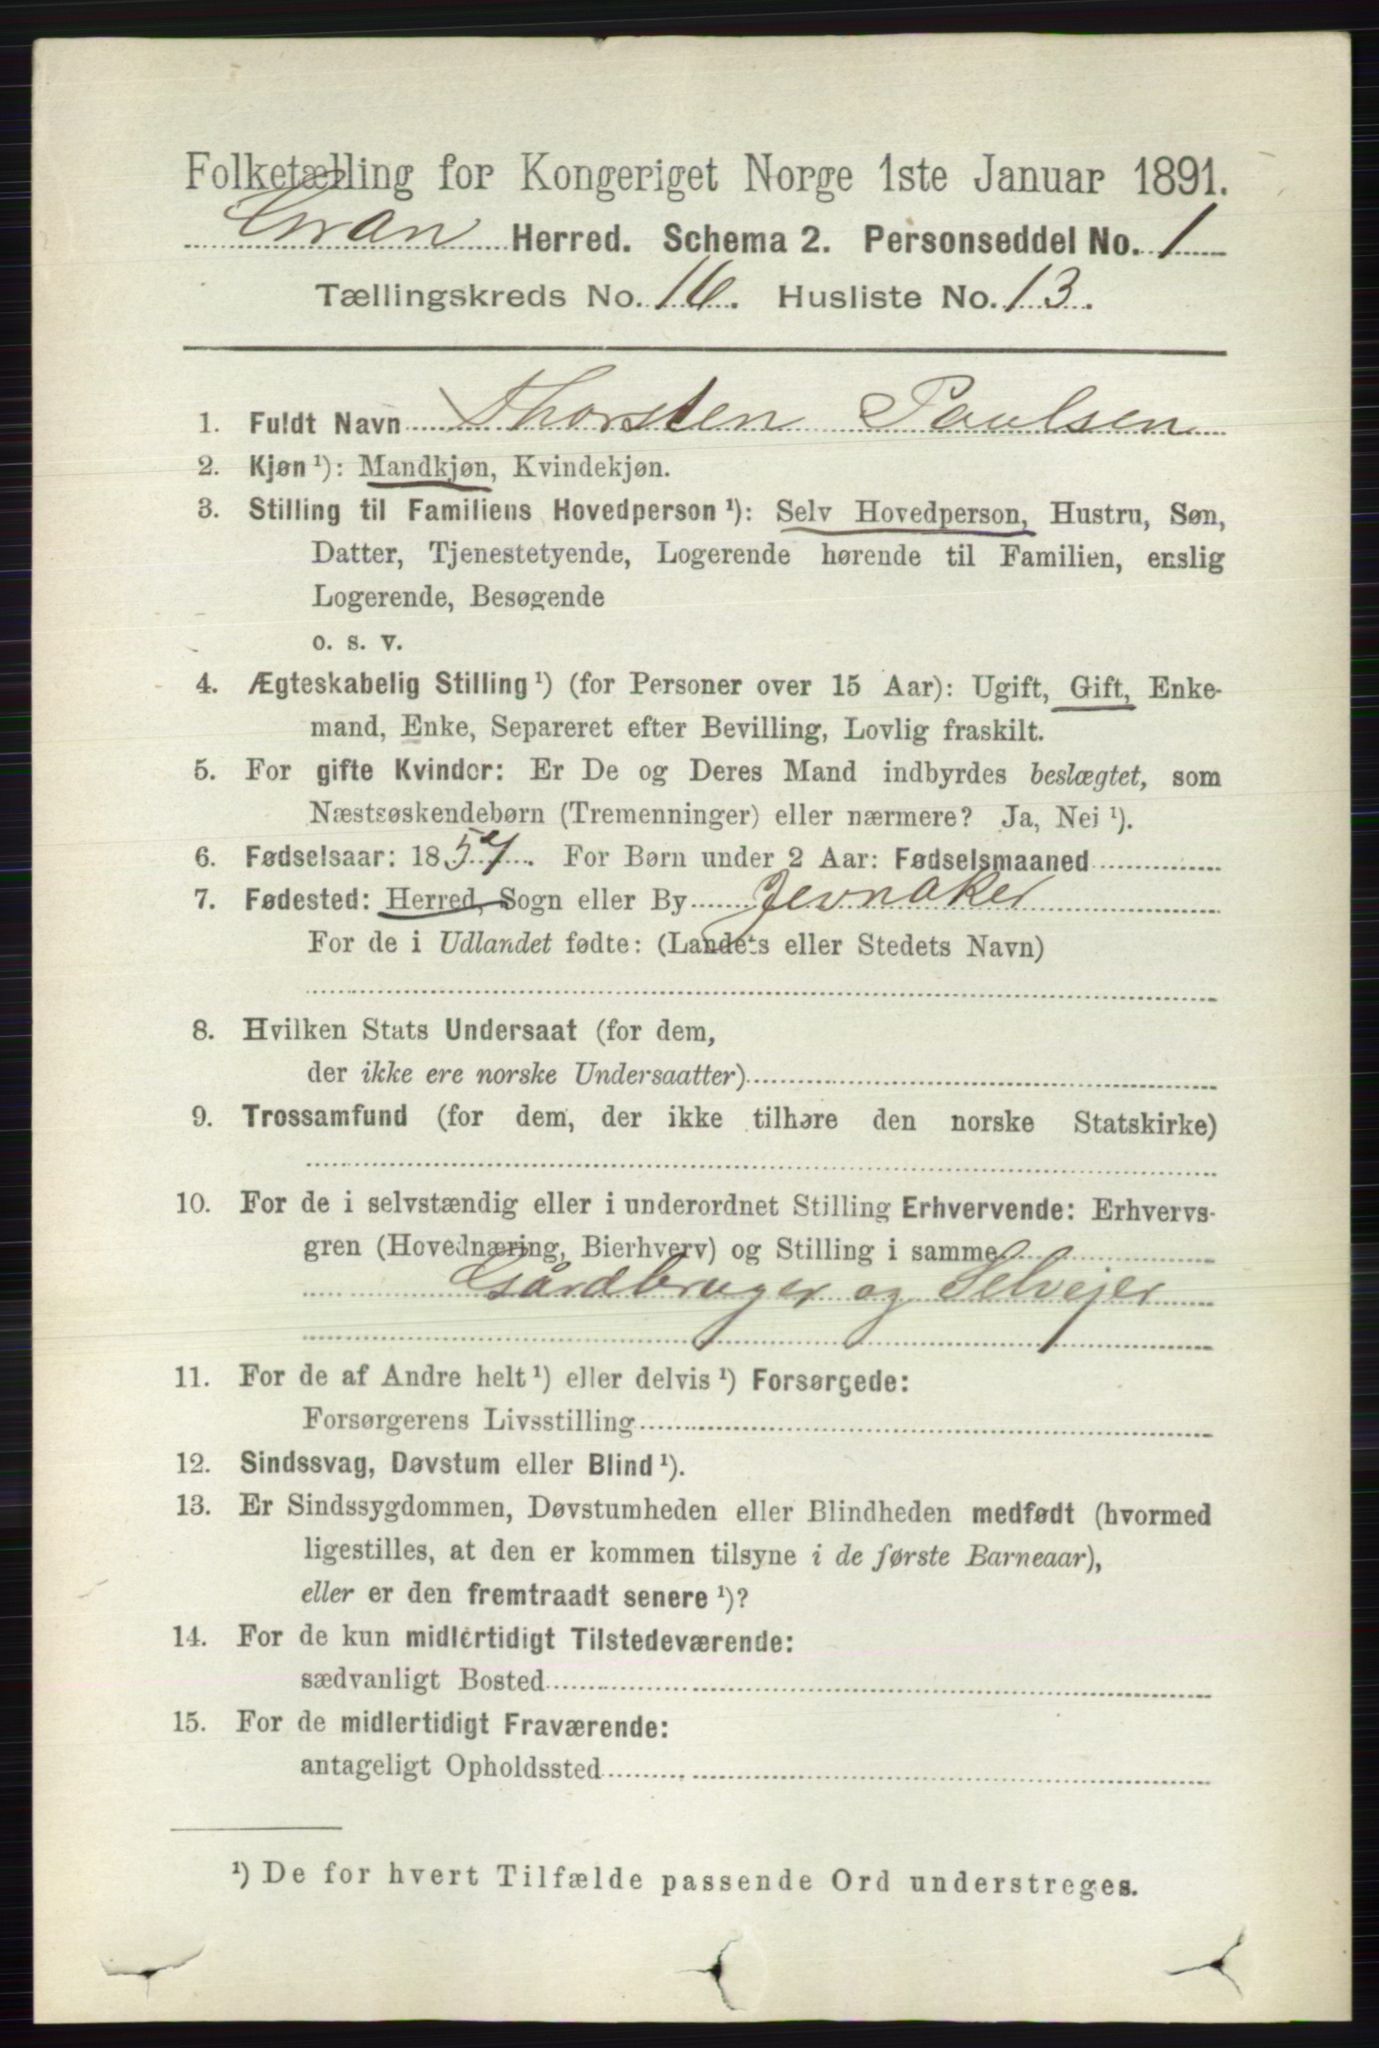 Folketælling for Kongeriget Norge 1ste Januar 1891.
Gran Herred. Schema 2. Personseddel No. 1
Tællingskreds No. 16. Husliste No. 13.
1. Fuldt Navn Thorsten Paulsen
2. Kjøn ¹): Mandkjøn, Kvindekjøn.
3. Stilling til Familiens Hovedperson ¹): Selv Hovedperson, Hustru, Søn,
Datter, Tjenestetyende, Logerende hørende til Familien, enslig
Logerende, Besøgende
o. s. v.
4. Ægteskabelig Stilling ¹) (for Personer over 15 Aar): Ugift, Gift, Enke-
mand, Enke, Separeret efter Bevilling, Lovlig fraskilt.
5. For gifte Kvinder: Er De og Deres Mand indbyrdes beslægtet, som
Næstsøskendebørn (Tremenninger) eller nærmere? Ja, Nei ¹).
6. Fødselsaar: 1857. For Børn under 2 Aar: Fødselsmaaned
7. Fødested: Herred, Sogn eller By Jevnaker
For de i Udlandet fødte: (Landets eller Stedets Navn)
8. Hvilken Stats Undersaat (for dem,
der ikke ere norske Undersaatter)
9. Trossamfund (for dem, der ikke tilhøre den norske Statskirke)
10. For de i selvstændig eller i underordnet Stilling Erhvervende: Erhvervs-
gren (Hovednæring, Bierhverv) og Stilling i samme
Gårdbruger og Selvejer
11. For de af Andre helt ¹) eller delvis ¹) Forsørgede:
Forsørgerens Livsstilling
12. Sindssvag, Døvstum eller Blind ¹).
13. Er Sindssygdommen, Døvstumheden eller Blindheden medfødt (hvormed
ligestilles, at den er kommen tilsyne i de første Barneaar),
eller er den fremtraadt senere ¹)?
14. For de kun midlertidigt Tilstedeværende:
sædvanligt Bosted
15. For de midlertidigt Fraværende:
antageligt Opholdssted
¹) De for hvert Tilfælde passende Ord understreges.